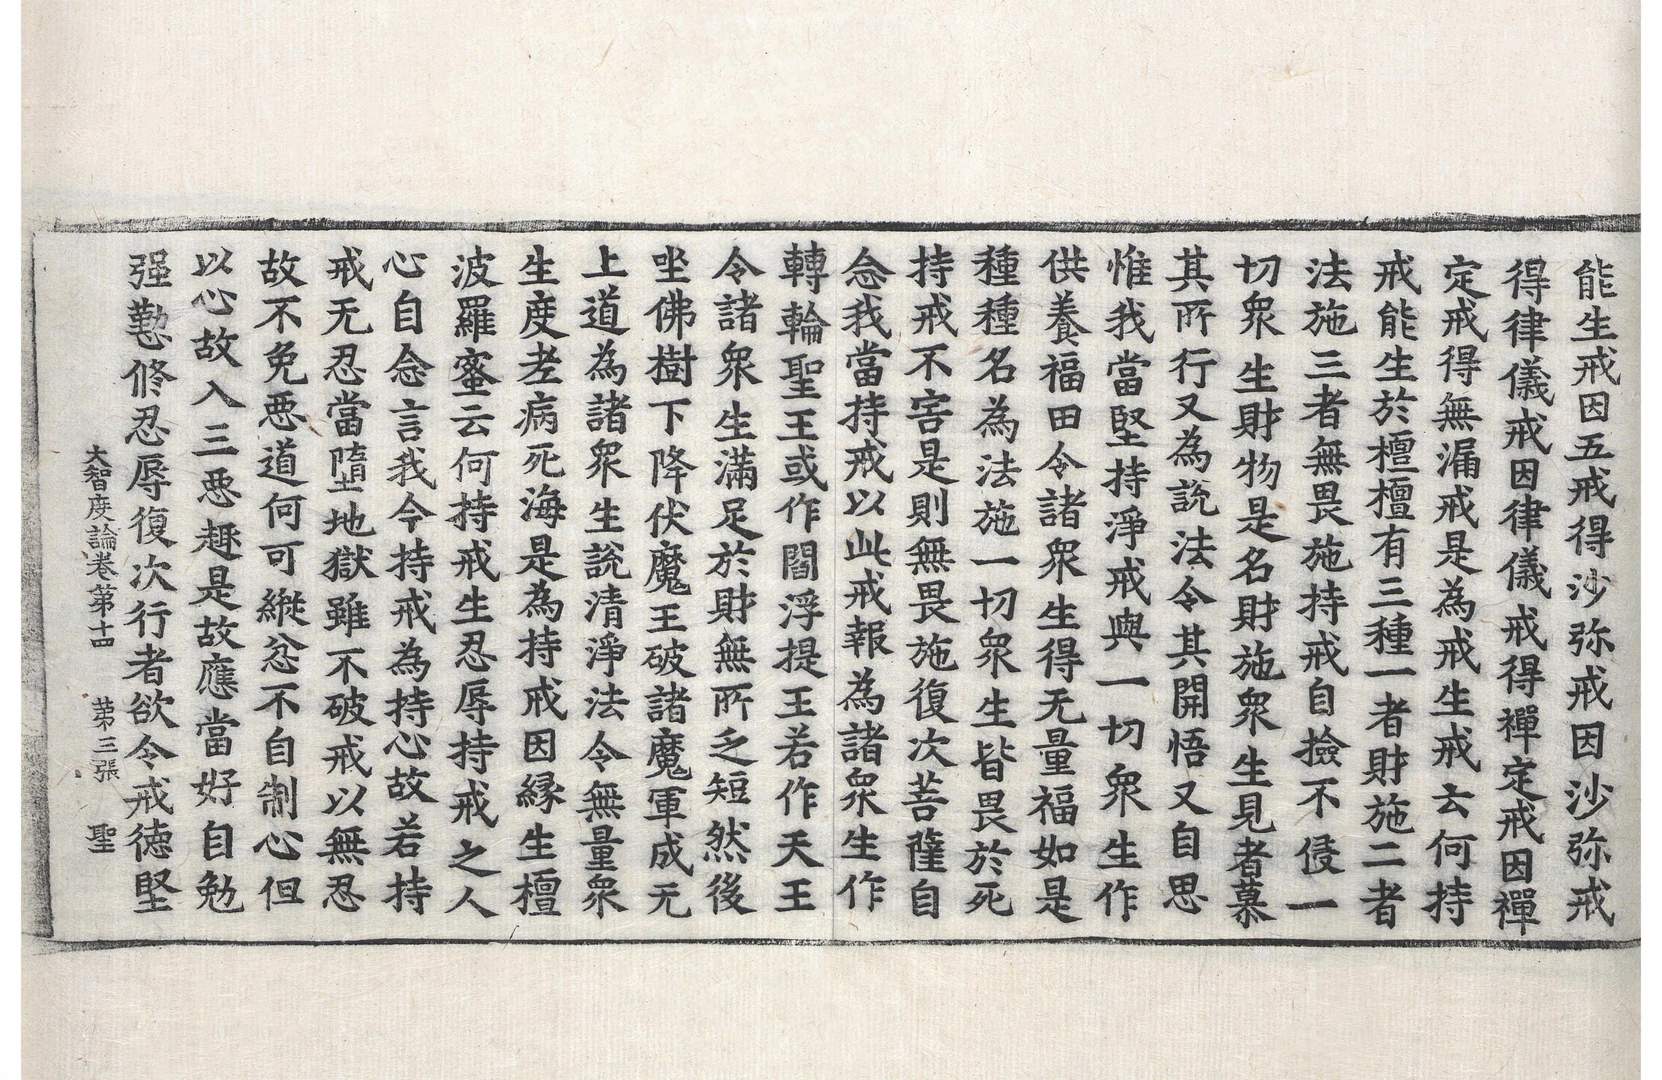 能生戒因五戒得沙弥戒因沙弥戒
得律儀戒因律儀戒得禪定戒因禪
定戒得無漏戒是為戒生戒云何持
戒能生於檀檀有三種一者財施二者
法施三者無畏施持戒自撿不侵一
切衆生財物是名財施衆生見者慕
其所行又為說法令其開悟又自思
惟我當堅持淨戒與一切衆生作
供養福田令諸衆生得无量福如是
種種名為法施一切衆生皆畏於死
持戒不害是則無畏施復次菩薩自
念我當持戒以此戒報為諸衆生作
轉輪聖王或作閻浮提王若作天王
令諸衆生滿足於財無所乏短然後
坐佛樹下降伏魔王破諸魔軍成无
上道為諸衆生說清淨法令無量衆
生度老病死海是為持戒因緣生檀
波羅蜜云何持戒生忍辱持戒之人
心自念言我今持戒為持心故若持
戒无忍當墮地獄雖不破戒以無忍
故不免惡道何可縱忿不自制心但
以心故入三惡趣是故應當好自勉
强懃修忍辱復次行者欲令戒德堅
大智度論卷第十四 第三張 聖